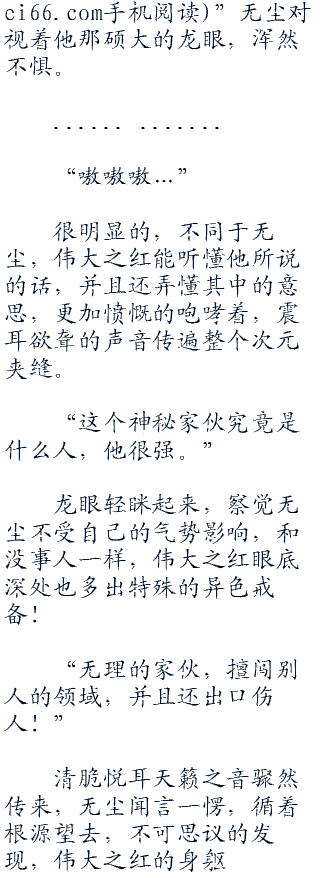 ci66.com手机阅读)”无尘对
视着他那硕大的龙眼，浑然
不惧。
...... .......
“嗷嗷嗷…”
很明显的，不同于无
尘，伟大之红能听懂他所说
的话，并且还弄懂其中的意
思，更加愤慨的咆哮着，震
耳欲聋的声音传遍整个次元
夹缝。
“这个神秘家伙究竟是
什么人，他很强。”
龙眼轻眯起来，察觉无
尘不受自己的气势影响，和
没事人一样，伟大之红眼底
深处也多出特殊的异色戒
备！
“无理的家伙，擅闯别
人的领域，并且还出口伤
人！”
清脆悦耳天籁之音骤然
传来，无尘闻言一愣，循着
根源望去，不可思议的发
现，伟大之红的身躯